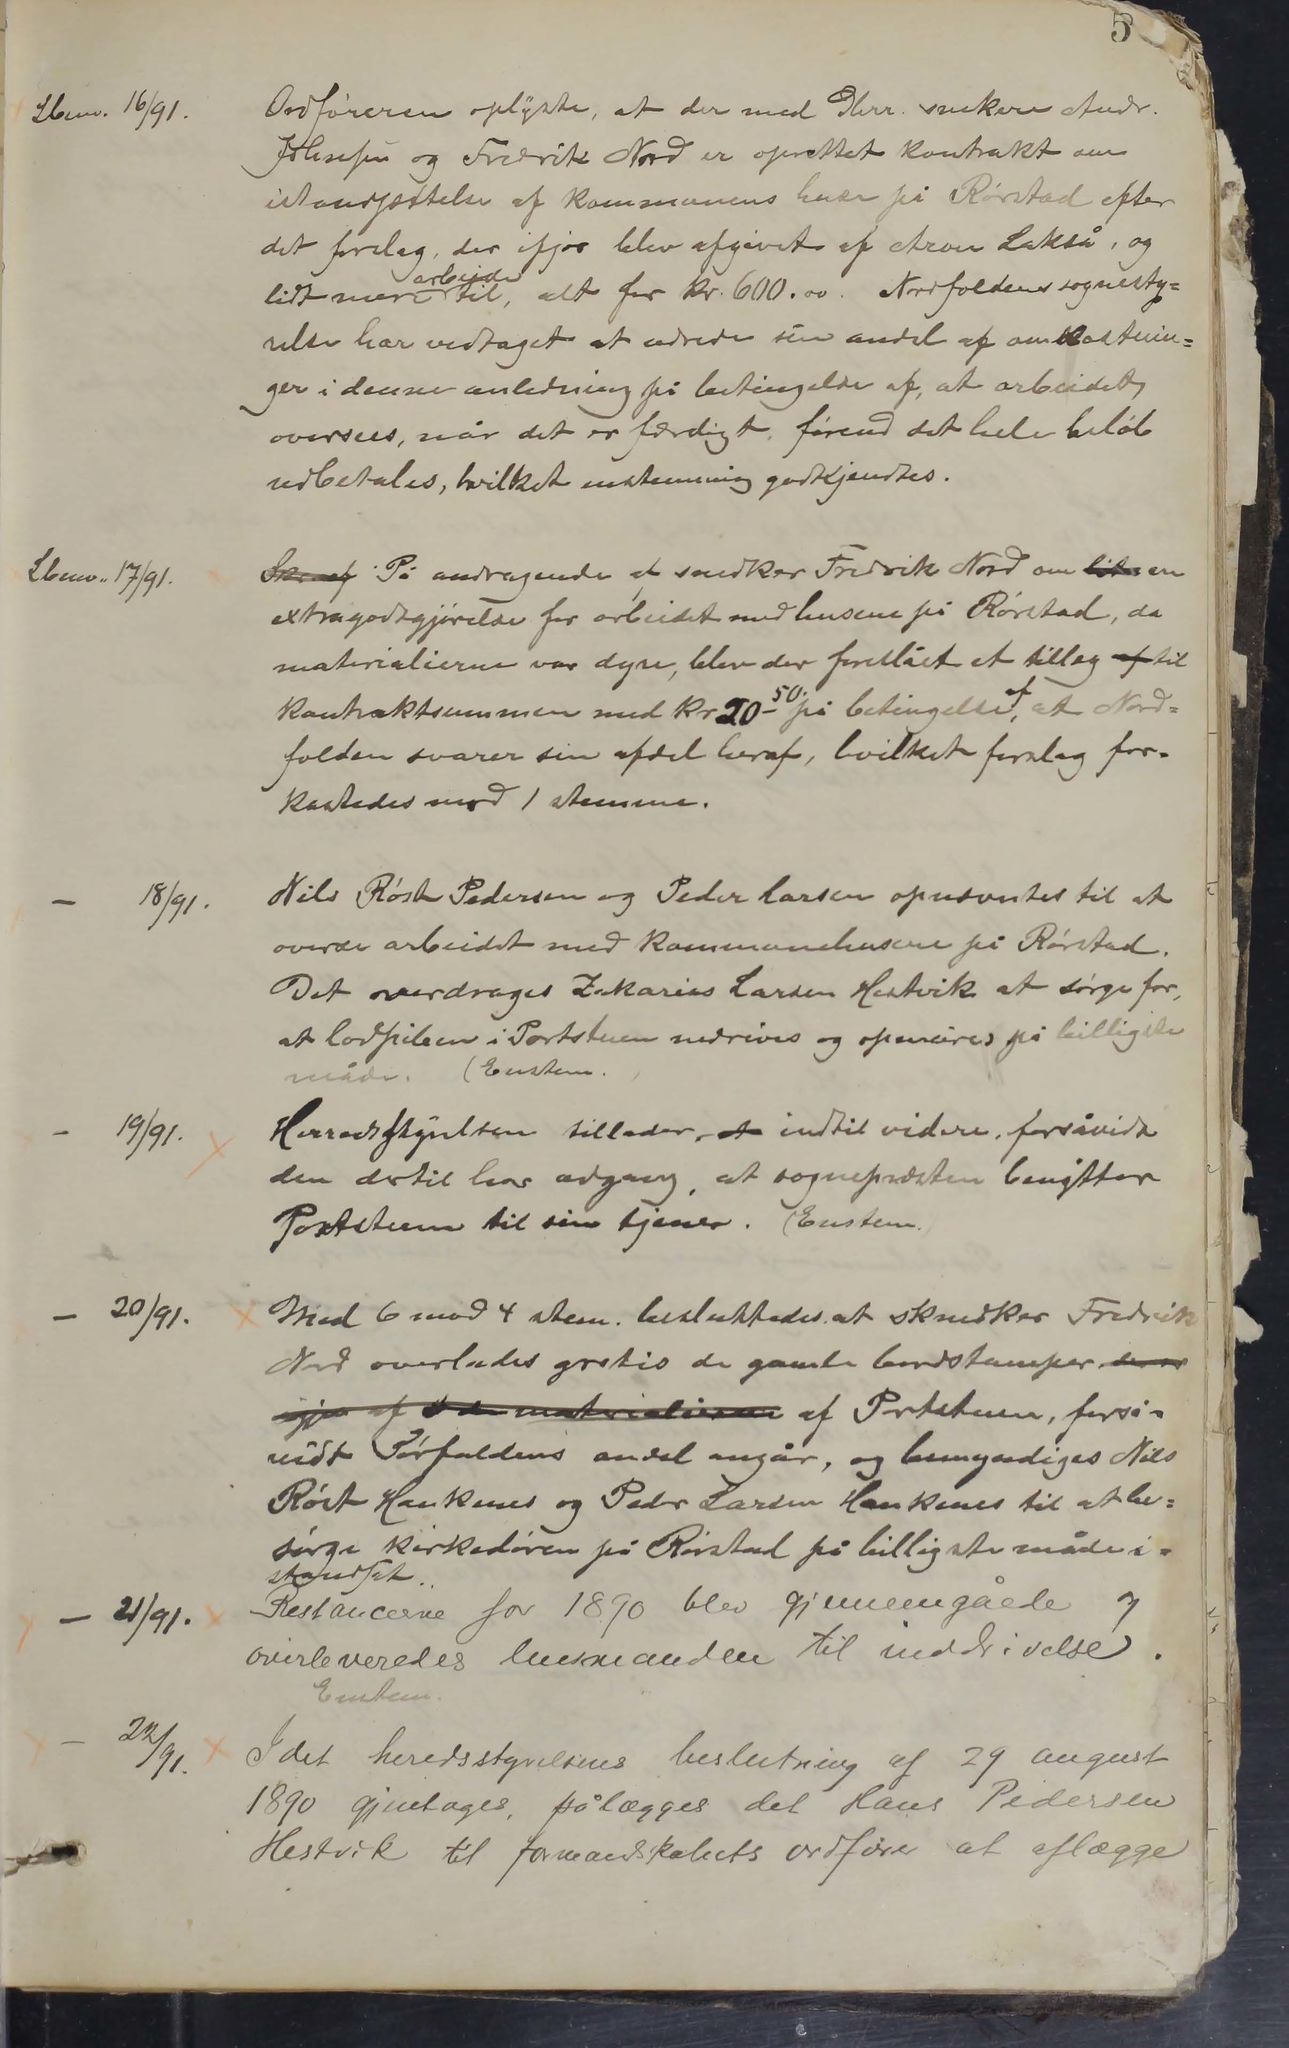 5
16/91. Ordføreren oplyste, at der med Hrr. snekere Andr.
Johnsen og Fredrik Nord er oprettet kontrakt om
istandsættelse af kommunens huse på Rørstad efter
det forslag, der ifjor blev afgivet af Aron Lakså, og
lidt mere arbeide til, alt for kr. 600.00. Nordfoldens sognesty=
relse har vedtaget at udrede sin andel af omkostnin=
ger i denne anledning på betingelse af, at arbeidet
oversees, når det er færdigt, førend det hele beløb
udbetales, hvilket enstemmig godkjendtes.
17/91. På andragende af snedker Fredrik Nord om en
extragodtgjørelse for arbeidet med husene på Rørstad, da
materialierne var dyre, blev der foreslået et tillæg af til
kontraktsummen med kr 20-50. på betingelse af, at Nord=
folden svarer sin afdel heraf, hvilket forslag for-
kastedes mod 1 stemme.
— 18/91. Nils Røst Pedersen og Peder Larsen opnævntes til at
overse arbeidet med kommunehusene på Rørstad.
Det overdrages Zakarias Larsen Hestvik at sørge for,
at lodpiben i Portstuen nedrives og opmures på billigste
måde. (Enstem.
- 19/91. Herredsstyrelsen tillader, at indtil videre, forsåvidt
den dertil har adgang, at sognepræsten benytter
Portstuen til sin tjener. (Enstem.
— 20/91. Med 6 mod 4 stem. besluttedes at sknedker Fredrik
Nord overlades gratis de gamle bordstumper
materialierne af Portstuen, forså-
vidt Sørfoldens andel angår, og bemyndiges Nils
Røst Haukenes og Peder Larsen Haukenes til at be=
sørge kirkedøren på Rørstad på billigste måde i=
standsat.
— 21/91. Restancerne for 1890 blev gjennemgåede og
overleveredes lensmanden til inddrivelse.
Enstem.
— 22/91. Idet heredsstyrelsens beslutning af 29 august
1890 gjentages, pålægges det Hans Pedersen
Hestvik til formandskabets ordfører at aflægge